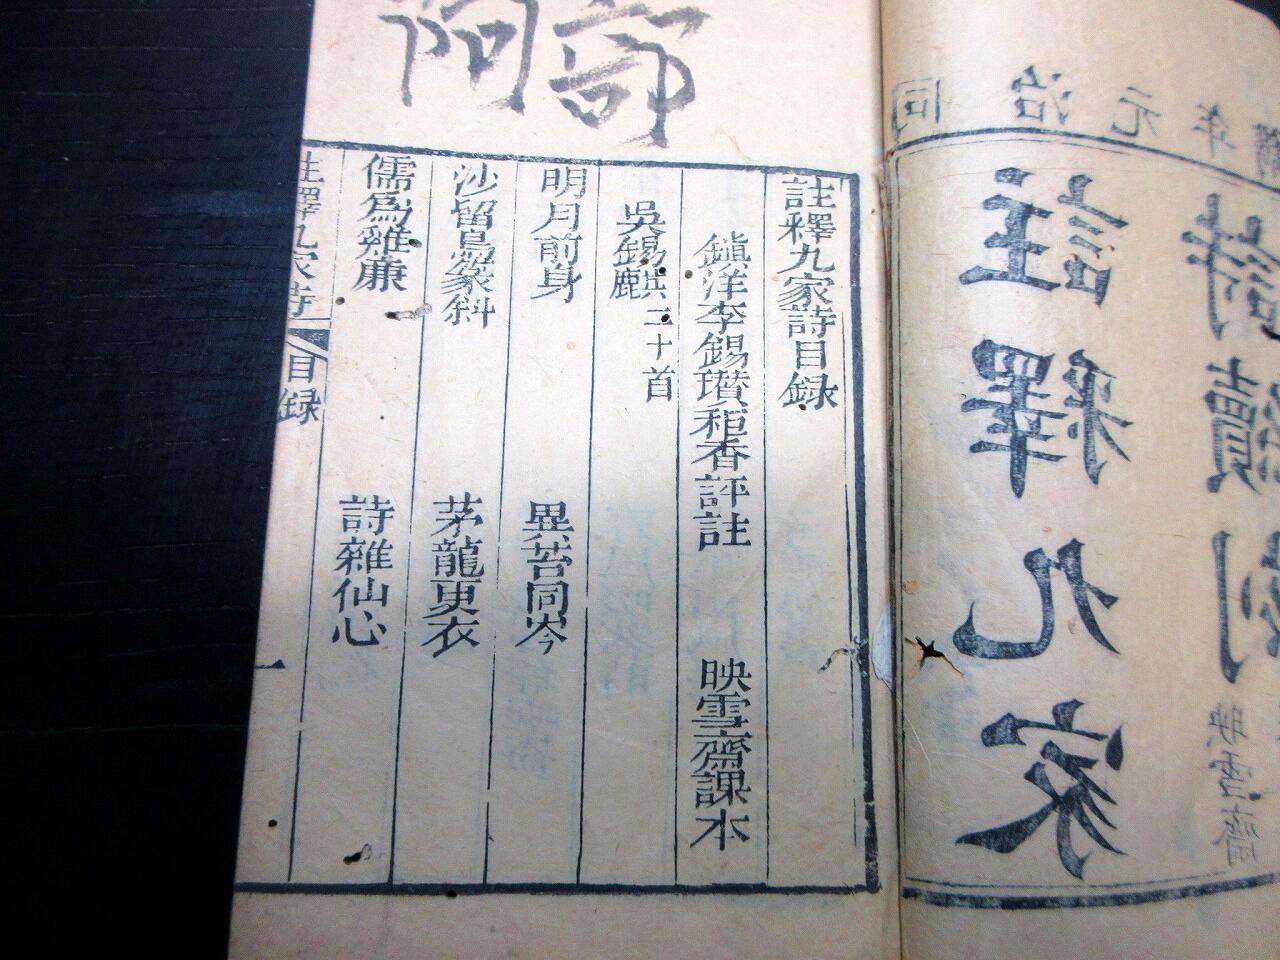 阿部
註釋九家詩目録
鎮洋李錫瓚秬香評註 映雪齋課本
吳錫麒 二十首
明月前身 異苔同岑
沙留鳥篆斜 茅龍更衣
儒為雞廉 詩雜仙心
註釋九家詩 目録 一
同治元年鐫
註釋九家
詩續刻
映雪齋